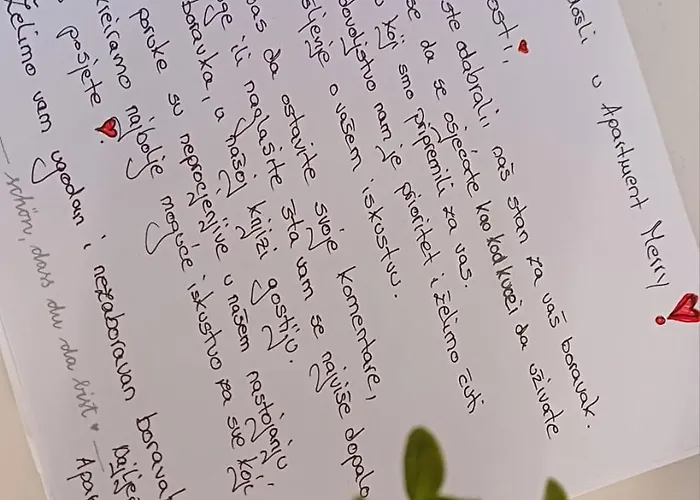 došli u Apartment Merry
osti,
ste odabrali naš stan za vaš boravak.
se da se osjećate kao kod kuće i da uživate
u koji smo pripremili za vas.
dovoljstvo nam je prioritet i želimo čuti
šljenje o vašem iskustvu.
vas da ostavite svoje komentare,
ge ili naglasite šta vam se najviše dopalo
boravka, u našoj knjizi gostiju.
poruke su neprocjenjive u našem nastojanju
kreiramo najbolje moguće iskustvo za sve koji
posjete.
želimo vam ugodan i nezaboravan borava
— schön, dass du da bist —
Apar